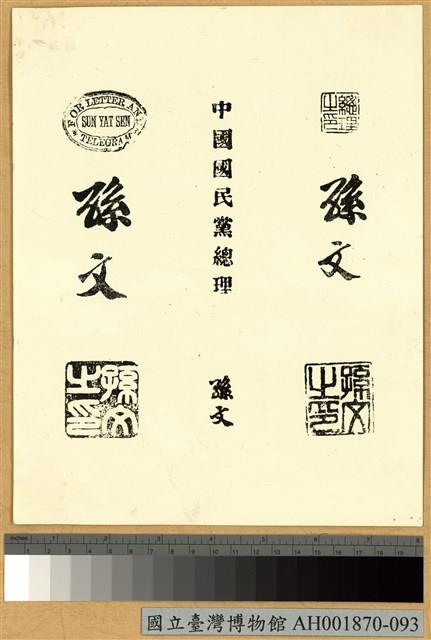 總理
之印
孫文
孫文
之印
中國國民黨總理
孫文
FOR LETTER AND
SUN YAT SEN
TELEGRAM
孫文
孫文
之印
Inches 1 2 3 4 5 6 7 8
1 2 3 4 5 6 7 8 9 10 11 12 13 14 15 16 17 18 19
國立臺灣博物館 AH001870-093